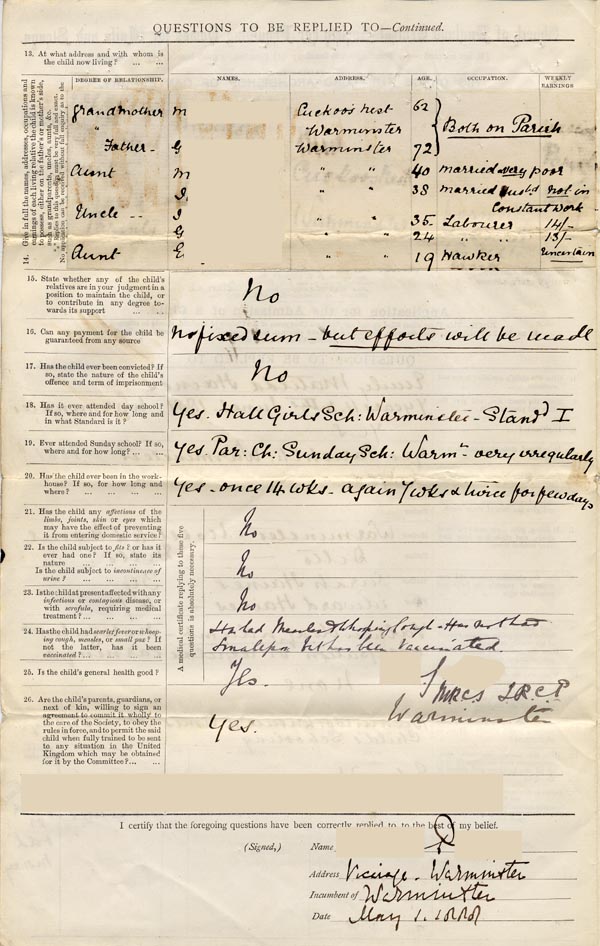 QUESTIONS TO BE REPLIED TO—Continued.
13. At what address and with whom is
the child now living? ... ...
14. Give in full the names, addresses, occupations and
earnings of each living relative the child is known
to possess, either on the father's or mother's side,
such as grandparents, uncles, aunts, &c.
DEGREE OF RELATIONSHIP. NAMES. ADDRESS. AGE. OCCUPATION. WEEKLY EARNINGS
Grandmother M Cuckoos nest 62
Warminster } Both on Parish
" Father - G Warminster 72
Aunt M " " 40 married very poor
J. " " 38 married husbd not in
Constant work
Uncle -- J. " " 35 Labourer 14/-
G " " 24 " " 13/-
Aunt E " " 19 Hawker Uncertain
15. State whether any of the child's
relatives are in your judgment in a
position to maintain the child, or
to contribute in any degree to-
wards its support ... ...
No
16. Can any payment for the child be
guaranteed from any source
No fixed sum - but efforts will be made
17. Has the child ever been convicted? If
so, state the nature of the child's
offence and term of imprisonment
No
18. Has it ever attended day school?
If so, where and for how long and
in what Standard is it? ... ...
Yes. Hall Girls Sch: Warminster - Standd I
19. Ever attended Sunday school? If so,
where and for how long? ... ...
Yes Par: Ch: Sunday Sch: Warmr - very irregularly
20. Has the child ever been in the work-
house? If so, for how long and
where? ... ... ... ...
Yes - once 14 wks - again 7 wks & twice for few days
A medical certificate replying to these five
questions is absolutely necessary.
21. Has the child any affections of the
limbs, joints, skin or eyes which
may have the effect of preventing
it from entering domestic service?
No
22. Is the child subject to fits? or has it
ever had one? If so, state its
nature ... ... ... ...
Is the child subject to incontinence of
urine? ... ... ... ...
No
23. Is the child at present affected with any
infectious or contagious disease, or
with scrofula, requiring medical
treatment? ... ... ... ...
No
24. Has the child had scarlet fever or whoop-
ing cough, measles, or small pox? If
not the latter, has it been
vaccinated? ... ... ... ...
Has had Measles & Whooping Cough - Has not had
Smallpox but has been vaccinated.
25. Is the child's general health good?
Yes.
MRCS LRCP
Warminster
26. Are the child's parents, guardians, or
next of kin, willing to sign an
agreement to commit it wholly to
the care of the Society, to obey the
rules in force, and to permit the said
child when fully trained to be sent
to any situation in the United
Kingdom which may be obtained
for it by the Committee? ... ...
Yes.
I certify that the foregoing questions have been correctly replied to, to the best of my belief.
(Signed,) Name
Address Vicarage - Warminster
Incumbent of Warminster
Date May 1. 1888